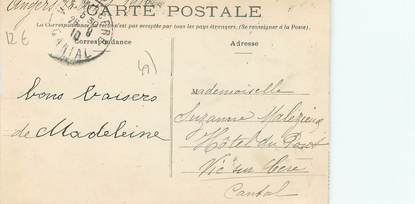 Angers
CARTE POSTALE
La Correspondance au recto n'est pas acceptée par tous les pays étrangers. (Se renseigner à la Poste).
Correspondance
Adresse
12 €
CANTAL
bons baisers
de Madeleine
Mademoiselle
Suzanne
Hôtel du Pont
Vic sur Cère
Cantal